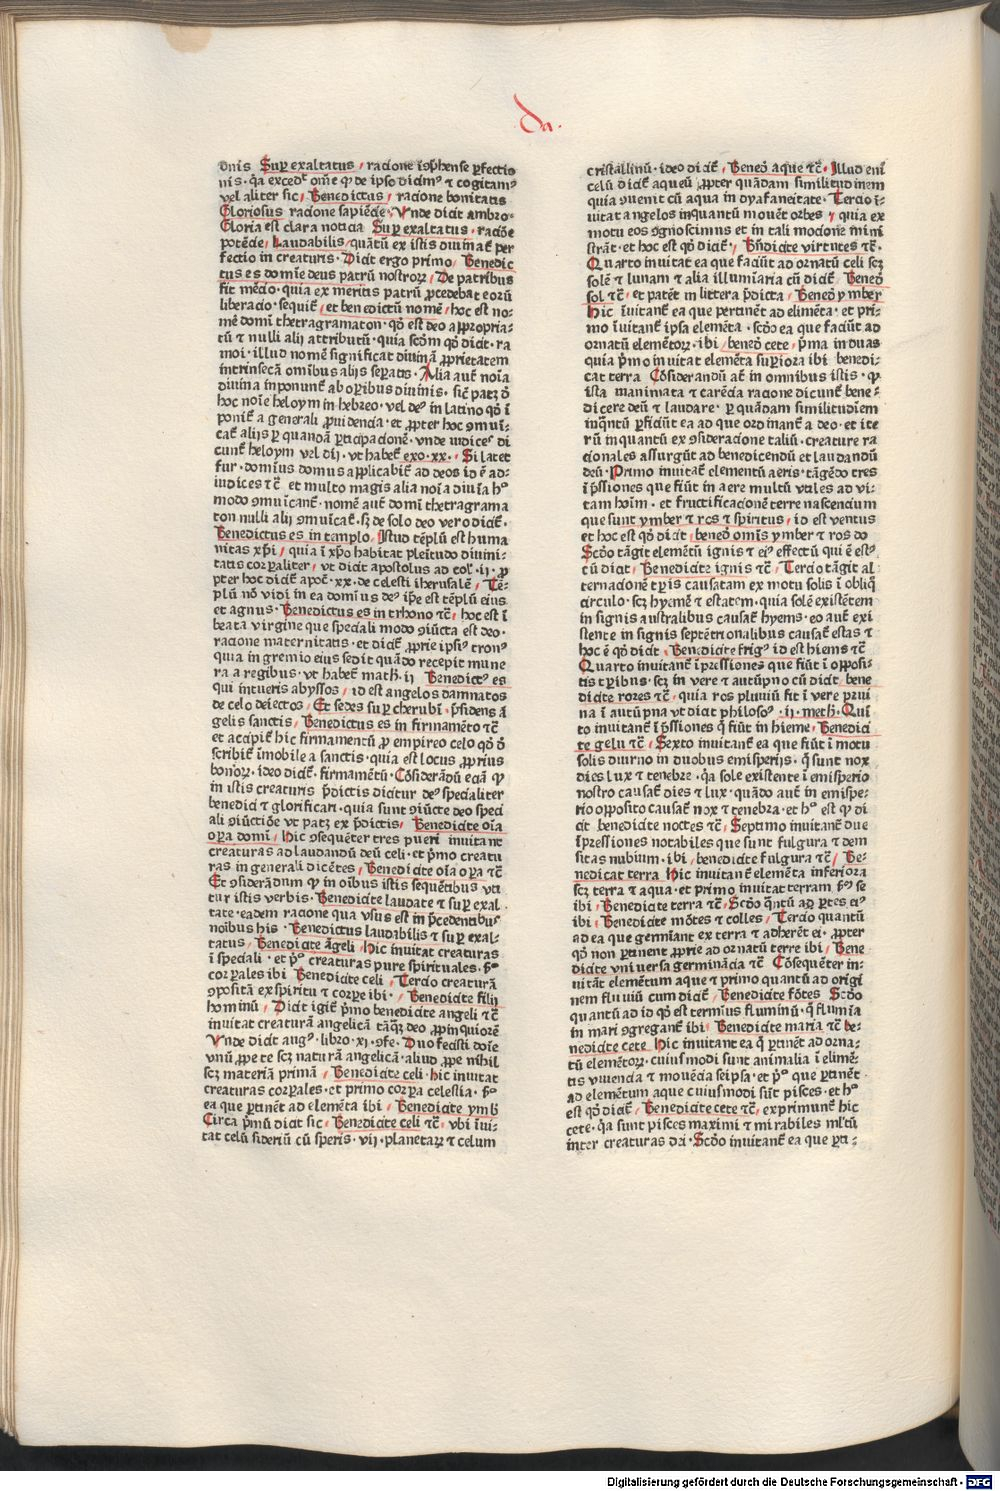 Da.
dn̄is Suꝑ exaltatus / racione īꝯp̄hense ꝑfectio
nis · q̄a excedᵗ om̄e ꝙ de ipso dicimꝰ ⁊ cogitamꝰ
vel aliter sic / Benedictus / racione bonitatis
Gloriosus racione sapiēcie / Vnde dicit ambro·
Gloria est clara noticia Suꝑ exaltatus · racōe
potēcie / Laudabilis / quātū ex istis diuinaꝫ per
fectio in creaturis · Dicit ergo primo / Benedic
tus es domīe deus patrū nostroꝝ / De patribus
fit mēcio · quia ex meritis patrū ꝓcedebat eorū
liberacio · sequiť / et benedictū nomē / hoc est no·
mē domī thetragramaton · qđ est deo aꝓpropria·
tū ⁊ nulli alij attributū · quia scđm qđ dicit · ra
moi · illud nomē significat diuinā ꝓprietatem
intrinsecā omībus alijs seꝑatis · Alia aut̄ noīa
diuina inponunt̄ ab oꝑibus diuinis · sic̄ patꝫ đ
hoc noīe heloym in hebreo · vel deꝰ in latino qđ ī
poniť a generali ꝓuidencia · et ꝓpter hoc ꝯmuī·
cať alijs ꝑ quandā ꝑticipacionē · vnde iudicesᵒ di
cunť heloym vel dij · vt habeť exo · xx · · Si latet
fur · domīus domus applicabiť ad deos id ē ad·
iudices ⁊c̄ et multo magis alia noīa diuīa hᵒ
modo ꝯmuīcanť · nomē aut̄ domī thetragrama
ton nulli alij ꝯmuīcať · sꝫ de solo deo vero diciť ·
Benedictus es in templo / Istud tēplū est huma
nitas xp̄i / quia ī xp̄o habitat pleītudo diuini·
tatis corꝑaliter / vt dicit apostolus ad col · ij · ꝓ
pter hoc diciť apoc̄ · xx · de celesti iherusalē / Tē·
plū nō vidi in ea domīus deꝰ ip̄e est tēplū eius
et agnus · Benedictus es in trhono ⁊c̄ / hoc est ī
beata virgine que speciali modo ꝯiūcta est deo ·
racione maternitatis · et diciť ꝓprie ipsiꝰ tronꝰ
quia in gremio eius sedit quādo recepit mune
ra a regibus · vt habeť math · ij Benedictꝰ es
qui intueris abyssos / id est angelos damnatos
de celo deiectos / Et sedes suꝑ cherubī · p̄sidens ā
gelis sanctis / Benedictus es in firmamēto ⁊c̄
et accipiť hic firmamentū ꝓ empireo celo qđ đ
scribiť īmobile a sanctis · quia est locus ꝓprius
bonoꝝ · ideo diciť · firmamētū / Cōsiderādū eciā ꝙ
in istis creaturis p̄dictis dicitur deꝰ specialiter
benedici ⁊ glorificari · quia sunt ꝯiūcte deo speci
ali ꝯiūctiōe vt patꝫ ex p̄dictis / Benedicite oīa
oꝑa domī / Hic ꝯsequēter tres pueri inuitant
creaturas ad laudandū deū celi · et p̄mo creatu
ras in generali dicētes / Benedicite oīa oꝑa ⁊c̄
Et ꝯsiderādum ꝙ in oībus istis sequētibus vti
tur istis verbis · Benedicite laudate ⁊ suꝑ exal ·
tate · eadem racione qua vsus est in p̄cedentibuˢ
noībus his · Benedictus laudabilis ⁊ suꝑ exal·
tatus / Benedicite āgeli / Hic inuitat creaturas
ī speciali · et p̄ᵒ creaturas pure spirituales · s̄ᵒ
corꝑales ibi Benedicite celi / Tercio creaturā
ꝯpositā ex spiritu ⁊ corꝑe ibi · / Benedicite filij
hominū / Dicit igiť p̄mo benedicite angeli ⁊c̄
inuitat creaturā angelicā tāqꝫ deo ꝓpinquiorē
Vnde dicit augꝰ · libro · xj · ꝯfe · Duo fecisti dōie
vnū ꝓpe te scꝫ naturā angelicā · aliud ꝓpe nihil
scꝫ materiā primā / Benedicite celi · Hic inuitat
creaturas corꝑales · et primo corꝑa celestia · s̄ᵒ
ea que ꝑtinēt ad elemēta ibi / Benedicite ymb̄
Circa p̄mū dicit sic / Benedicite celi ⁊c̄ · vbi īui·
tat celū sideriū cū speris · vij · planetaꝝ ⁊ celum
cristallinū · ideo diciť / Bened̄ aque ⁊c̄ / Illud enī
celū diciť aqueū ꝓpter quādam similitudinem
quia ꝯuenit cū aqua in dyafaneitate · Tercio ī·
uitat angelos inquantū mouēt orbes / quia ex
motu eos ꝯgnoscimus et in tali mocione mīni
strāt · et hoc est qđ diciť / Bn̄dicite virtutes ⁊c̄ ·
Quarto inuitat ea que faciūt ad ornatū celi scꝫ
solē ⁊ lunam ⁊ alia illumīaria cū diciť Bened̄
sol ⁊c̄ / et patēt in littera p̄dicta / Bened̄ ymber
Hic īuitanť ea que pertinēt ad elimēta · et pri·
mo īuitanť ipsa elemēta · scđo ea que faciūt ad
ornatū elemētoꝝ · ibi / bened̄ cete / p̄ma in duas
quia p̄mo inuitat elemēta suꝑiora ibi benedi·
cat terra Cōsiderandū aut̄ in omnibus istis · ꝙ
ista inanimata ⁊ carēcia racione dicunť bene·
dicere deū ⁊ laudare · ꝑ quādam similitudīem
inq̄ntū ꝑficiūt ea ad que ordinanť a deo · et ite
rū inquantū ex ꝯsideracione taliū · creature ra
cionales assurgūt ad benedicendū et laudandū
deū · Primo inuitať elementū aeris · tāgēdo tres
īpressiones que fiūt in aere multū vtiles ad vi·
tam hoīm · et fructificacionē terre nascencium
que sunt ymber ⁊ ros ⁊ spiritus / id est ventus
et hoc est qđ dicit / bened̄ omīs ymber ⁊ ros do
Scđo tāgit elemētū ignis ⁊ eiꝰ effectū qui ē estꝰ
cū dicit / Benedicite ignis ⁊c̄ / Tercio tāgit al
ternacionē tꝑis causatam ex motu solis ī obliq̄
circulo · scꝫ hyemē ⁊ estatem · quia solē existētem
in signis australibus causať hyems · eo aut̄ exi
stente in signis septētrionalibus causať estas ⁊
hoc ē qđ dicit · Benedicite frigꝰ id est hiems ⁊c̄
Quarto inuitanť īpressiones que fiūt ī opposi·
tis tꝑibus · scꝫ in vere ⁊ autūpno cū dicit / bene
dicite rores ⁊c̄ · quia ros pluuiū fit ī vere prui
na ī autūpna vt dicit philosoᵘ · ij · meth · Quī
to inuitanť īpressiōnes q̄ fiūt in hieme / Benedici
te gelu ⁊c̄ / Sexto inuitanť ea que fiūt ī motu
solis diurno in duobus emisperijs · q̄ sunt nox
dies lux ⁊ tenebre · q̄a sole existente ī emisperio
nostro causať dies ⁊ lux · quādo aut̄ in emispe·
rio opposito causať nox ⁊ tenebra · et hᵒ est ꝙ di
cit benedicite noctes ⁊c̄ / Septimo inuitanť due
īpressiones notabiles que sunt fulgura ⁊ dem
sitas nubium · ibi / benedicite fulgura ⁊c̄ / Be·
nedicat terra Hic inuitanť elemēta inferiora
scꝫ terra ⁊ aqua · et primo inuitat terram s̄ᵒ se
ibi / Benedicite terra ⁊c̄ / Scđo q̄ntū ad ꝑtes eiꝰ
ibi / Benedicite mōtes ⁊ colles / Tercio quantū
ad ea que germīant ex terra ⁊ adherēt ei · ꝓpter
qđ non ꝑtinent ꝓprie ad ornatū terre ibi / Bene
dicite vniuersa germinācia ⁊c̄ Cōsequēter in·
uitāt elemētum aque ⁊ primo quantū ad origi
nem fluuiū cum diciť / Benedicite fōtes Scđo
quantū ad id qđ est termius fluminū · q̄ flumīa
in mari ꝯgreganť ibi / Benedicite maria ⁊c̄ be·
nedicite cete Hic inuitant ea q̄ ꝑtinēt ad orna·
tū elemētoꝝ · cuiusmodi sunt animalia ī elimē·
tis viuencia ⁊ mouēcia seipsa · et p̄ᵒ que ꝑtinēt ·
ad elemētum aque cuiusmodi sūt pisces · et hᵒ
est qđ diciť / Benedicite cete ⁊c̄ / exprimunť hic
cete · q̄a sunt pisces maximi ⁊ mirabiles ml̄tū
inter creaturas dei · Scđo inuitanť ea que ꝑti·
Digitalisierung gefördert durch die Deutsche Forschungsgemeinschaft · DFG